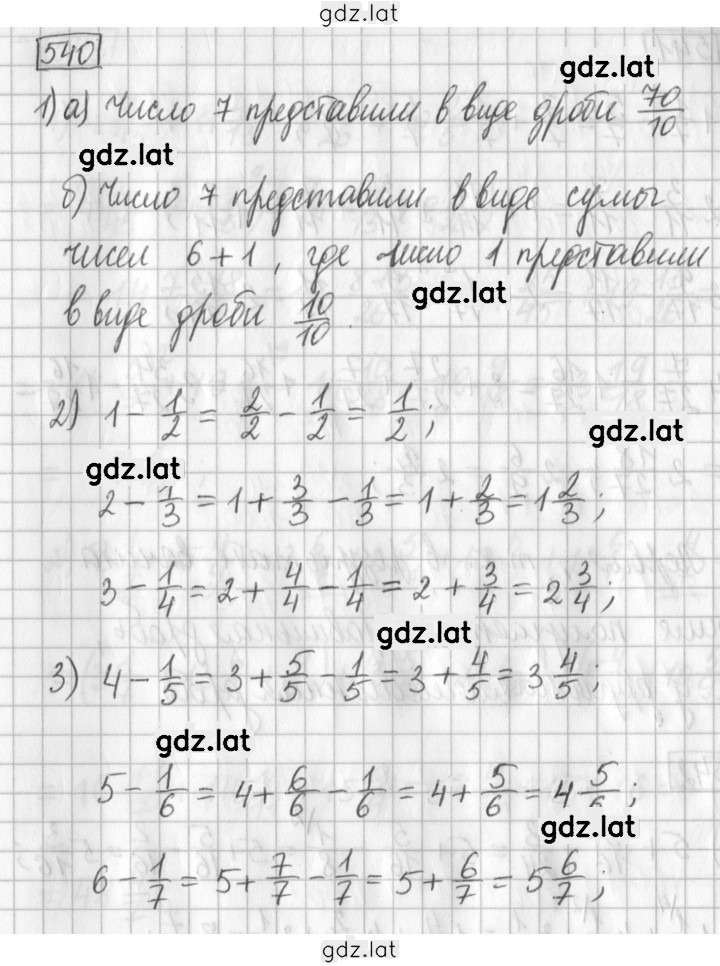 gdz.lat
540
gdz.lat
1) а) Число 7 представили в виде дроби 70/10
gdz.lat
б) Число 7 представили в виде сумы
чисел 6 + 1, где число 1 представили
gdz.lat
в виде дроби 10/10.
2) 1 - 1/2 = 2/2 - 1/2 = 1/2;
gdz.lat
gdz.lat
2 - 1/3 = 1 + 3/3 - 1/3 = 1 + 2/3 = 1 2/3;
3 - 1/4 = 2 + 4/4 - 1/4 = 2 + 3/4 = 2 3/4;
gdz.lat
3) 4 - 1/5 = 3 + 5/5 - 1/5 = 3 + 4/5 = 3 4/5;
gdz.lat
5 - 1/6 = 4 + 6/6 - 1/6 = 4 + 5/6 = 4 5/6;
gdz.lat
6 - 1/7 = 5 + 7/7 - 1/7 = 5 + 6/7 = 5 6/7;
gdz.lat